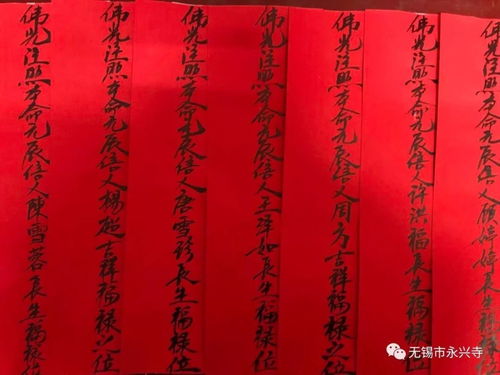 佛光注照本命元辰信人顾婷婷長生福禄位
佛光注照本命元辰信人许洪福長生福禄位
佛光注照本命元辰信人周方吉祥福禄之位
佛光注照本命元辰信人王洋如長生福禄位
佛光注照本命元辰信人唐雪珍長生福禄位
佛光注照本命元辰信人楊吉祥福禄之位
佛光注照本命元辰信人陳雪蓉長生福禄位
无锡市永兴寺